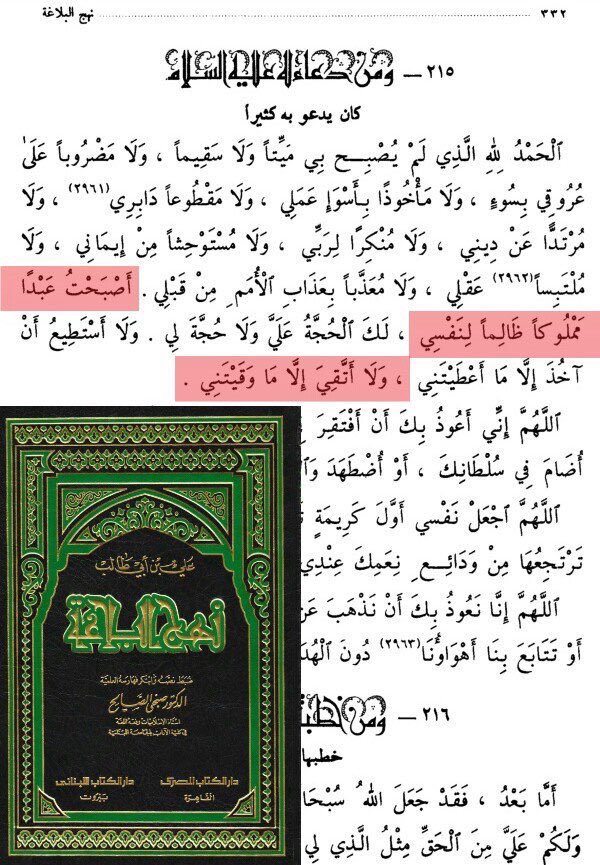 ٣٣٢ نهج البلاغة
٢١٥ – ومن دعاء له عليه السلام
كان يدعو به كثيراً
ٱلْحَمْدُ لِلهِ الَّذِي لَمْ يُصْبِحْ بِي مَيِّتاً وَلَا سَقِيماً ، وَلَا مَضْرُوباً عَلَىٰ
عُرُوقِي بِسُوءٍ ، وَلَا مَأْخُوذًا بِأَسْوَإِ عَمَلِي ، وَلَا مَقْطُوعاً دَابِرِي (٢٩٦١) ، وَلَا
مُرْتَدًّا عَنْ دِينِي ، وَلَا مُنْكِرًا لِرَبِّي ، وَلَا مُسْتَوْحِشاً مِنْ إِيمَانِي ، وَلَا
مُلْتَبِساً (٢٩٦٢) عَقْلِي ، وَلَا مُعَذَّباً بِعَذَابِ الْأُمَمِ مِنْ قَبْلِي . أَصْبَحْتُ عَبْدًا
مَمْلُوكاً ظَالِماً لِنَفْسِي ، لَكَ الْحُجَّةُ عَلَيَّ وَلَا حُجَّةَ لِي . وَلَا أَسْتَطِيعُ أَنْ
آخُذَ إِلَّا مَا أَعْطَيْتَنِي ، وَلَا أَتَّقِيَ إِلَّا مَا وَقَيْتَنِي .
اللَّهُمَّ إِنِّي أَعُوذُ بِكَ أَنْ أَفْتَقِرَ
أُضَامَ فِي سُلْطَانِكَ ، أَوْ أُضْطَهَدَ
اللَّهُمَّ ٱجْعَلْ نَفْسِي أَوَّلَ كَرِيمَةٍ
تَرْتَجِعُهَا مِنْ وَدَائِعِ نِعَمِكَ عِنْدِي
اللَّهُمَّ إِنَّا نَعُوذُ بِكَ أَنْ نَذْهَبَ
أَوْ تَتَابَعَ بِنَا أَهْوَاؤُنَا (٢٩٦٣) دُونَ
٢١٦ – ومن خطبة
خطبها
أَمَّا بَعْدُ ، فَقَدْ جَعَلَ اللهُ سُبْحَا
وَلَكُمْ عَلَيَّ مِنَ الْحَقِّ مِثْلُ الَّذِي لِي
علي بن أبي طالب
نهج البلاغة
ضبط نصه وابتكر فهارسه العلمية
الدكتور صبحي الصالح
دار الكتاب المصري
القاهرة
دار الكتاب اللبناني
بيروت